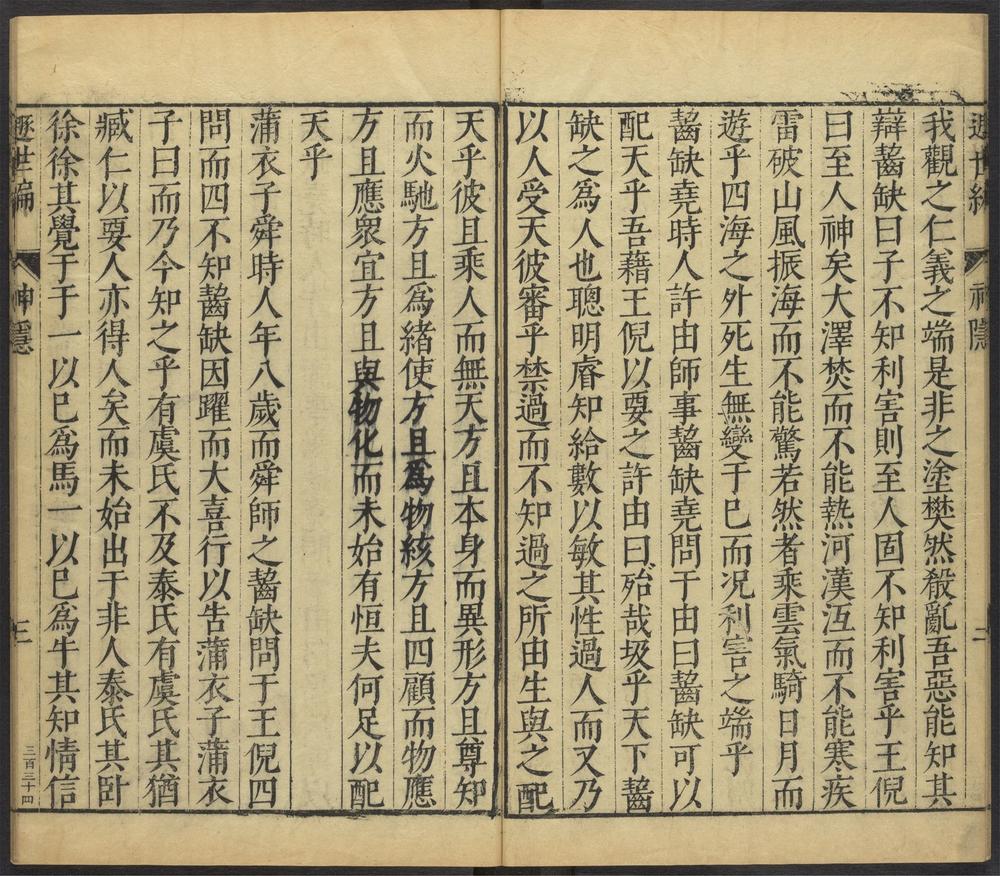 遯世編 神隱 二
我觀之仁義之端是非之塗樊然殽亂吾惡能知其
辯齧缺曰子不知利害則至人固不知利害乎王倪
曰至人神矣大澤焚而不能熱河漢沍而不能寒疾
雷破山風振海而不能驚若然者乘雲氣騎日月而
遊乎四海之外死生無變于已而况利害之端乎
齧缺堯時人許由師事齧缺堯問于由曰齧缺可以
配天乎吾藉王倪以要之許由曰殆哉圾乎天下齧
缺之爲人也聰明睿知給數以敏其性過人而又乃
以人受天彼審乎禁過而不知過之所由生與之配
天乎彼且乘人而無天方且本身而異形方且尊知
而火馳方且爲緒使方且爲物絯方且四顧而物應
方且應衆宜方且與物化而未始有恒夫何足以配
天乎
蒲衣子舜時人年八歲而舜師之齧缺問于王倪四
問而四不知齧缺因躍而大喜行以告蒲衣子蒲衣
子曰而乃今知之乎有虞氏不及泰氏有虞氏其猶
臧仁以要人亦得人矣而未始出于非人泰氏其卧
徐徐其覺于于一以巳爲馬一以巳爲牛其知情信
遯世編 神隱 三 三百三十四